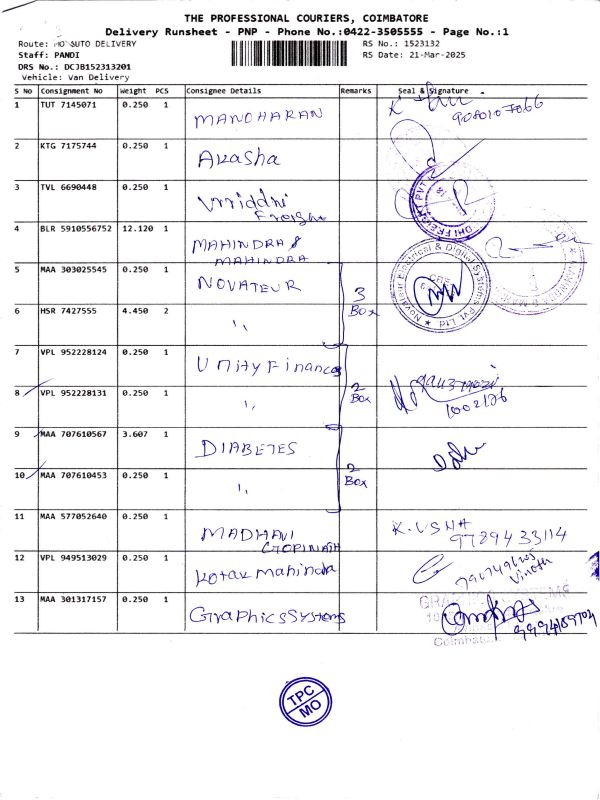 THE PROFESSIONAL COURIERS, COIMBATORE
Delivery Runsheet - PNP - Phone No.:0422-3505555 - Page No.:1
Route: AUTO DELIVERY
RS No.: 1523132
Staff: PANDI
RS Date: 21-Mar-2025
DRS No.: DCJB152313201
Vehicle: Van Delivery
S No Consignment No Weight PCS Consignee Details Remarks Seal & Signature
1 TUT 7145071 0.250 1 MANOHARAN
2 KTG 7175744 0.250 1 Akasha
3 TVL 6690448 0.250 1 Vriddhi
4 BLR 5910556752 12.120 1 MAHINDRA &
MAHINDRA
5 MAA 303025545 0.250 1 NOVATEUR 3
BOX
Novateur Electrical & Digital Systems Pvt Ltd
6 HSR 7427555 4.450 2 "
7 VPL 952228124 0.250 1 Unity Finance
8 VPL 952228131 0.250 1 " 2
Box
9 MAA 707610567 3.607 1 DIABETES
10 MAA 707610453 0.250 1 " 2
Box
11 MAA 577052640 0.250 1 MADHANI K.USHA
GOPINATH 9789433114
12 VPL 949513029 0.250 1 Kotak mahindra
Vinoth
13 MAA 301317157 0.250 1 Graphics Systems
Coimbatore
TPC
MO